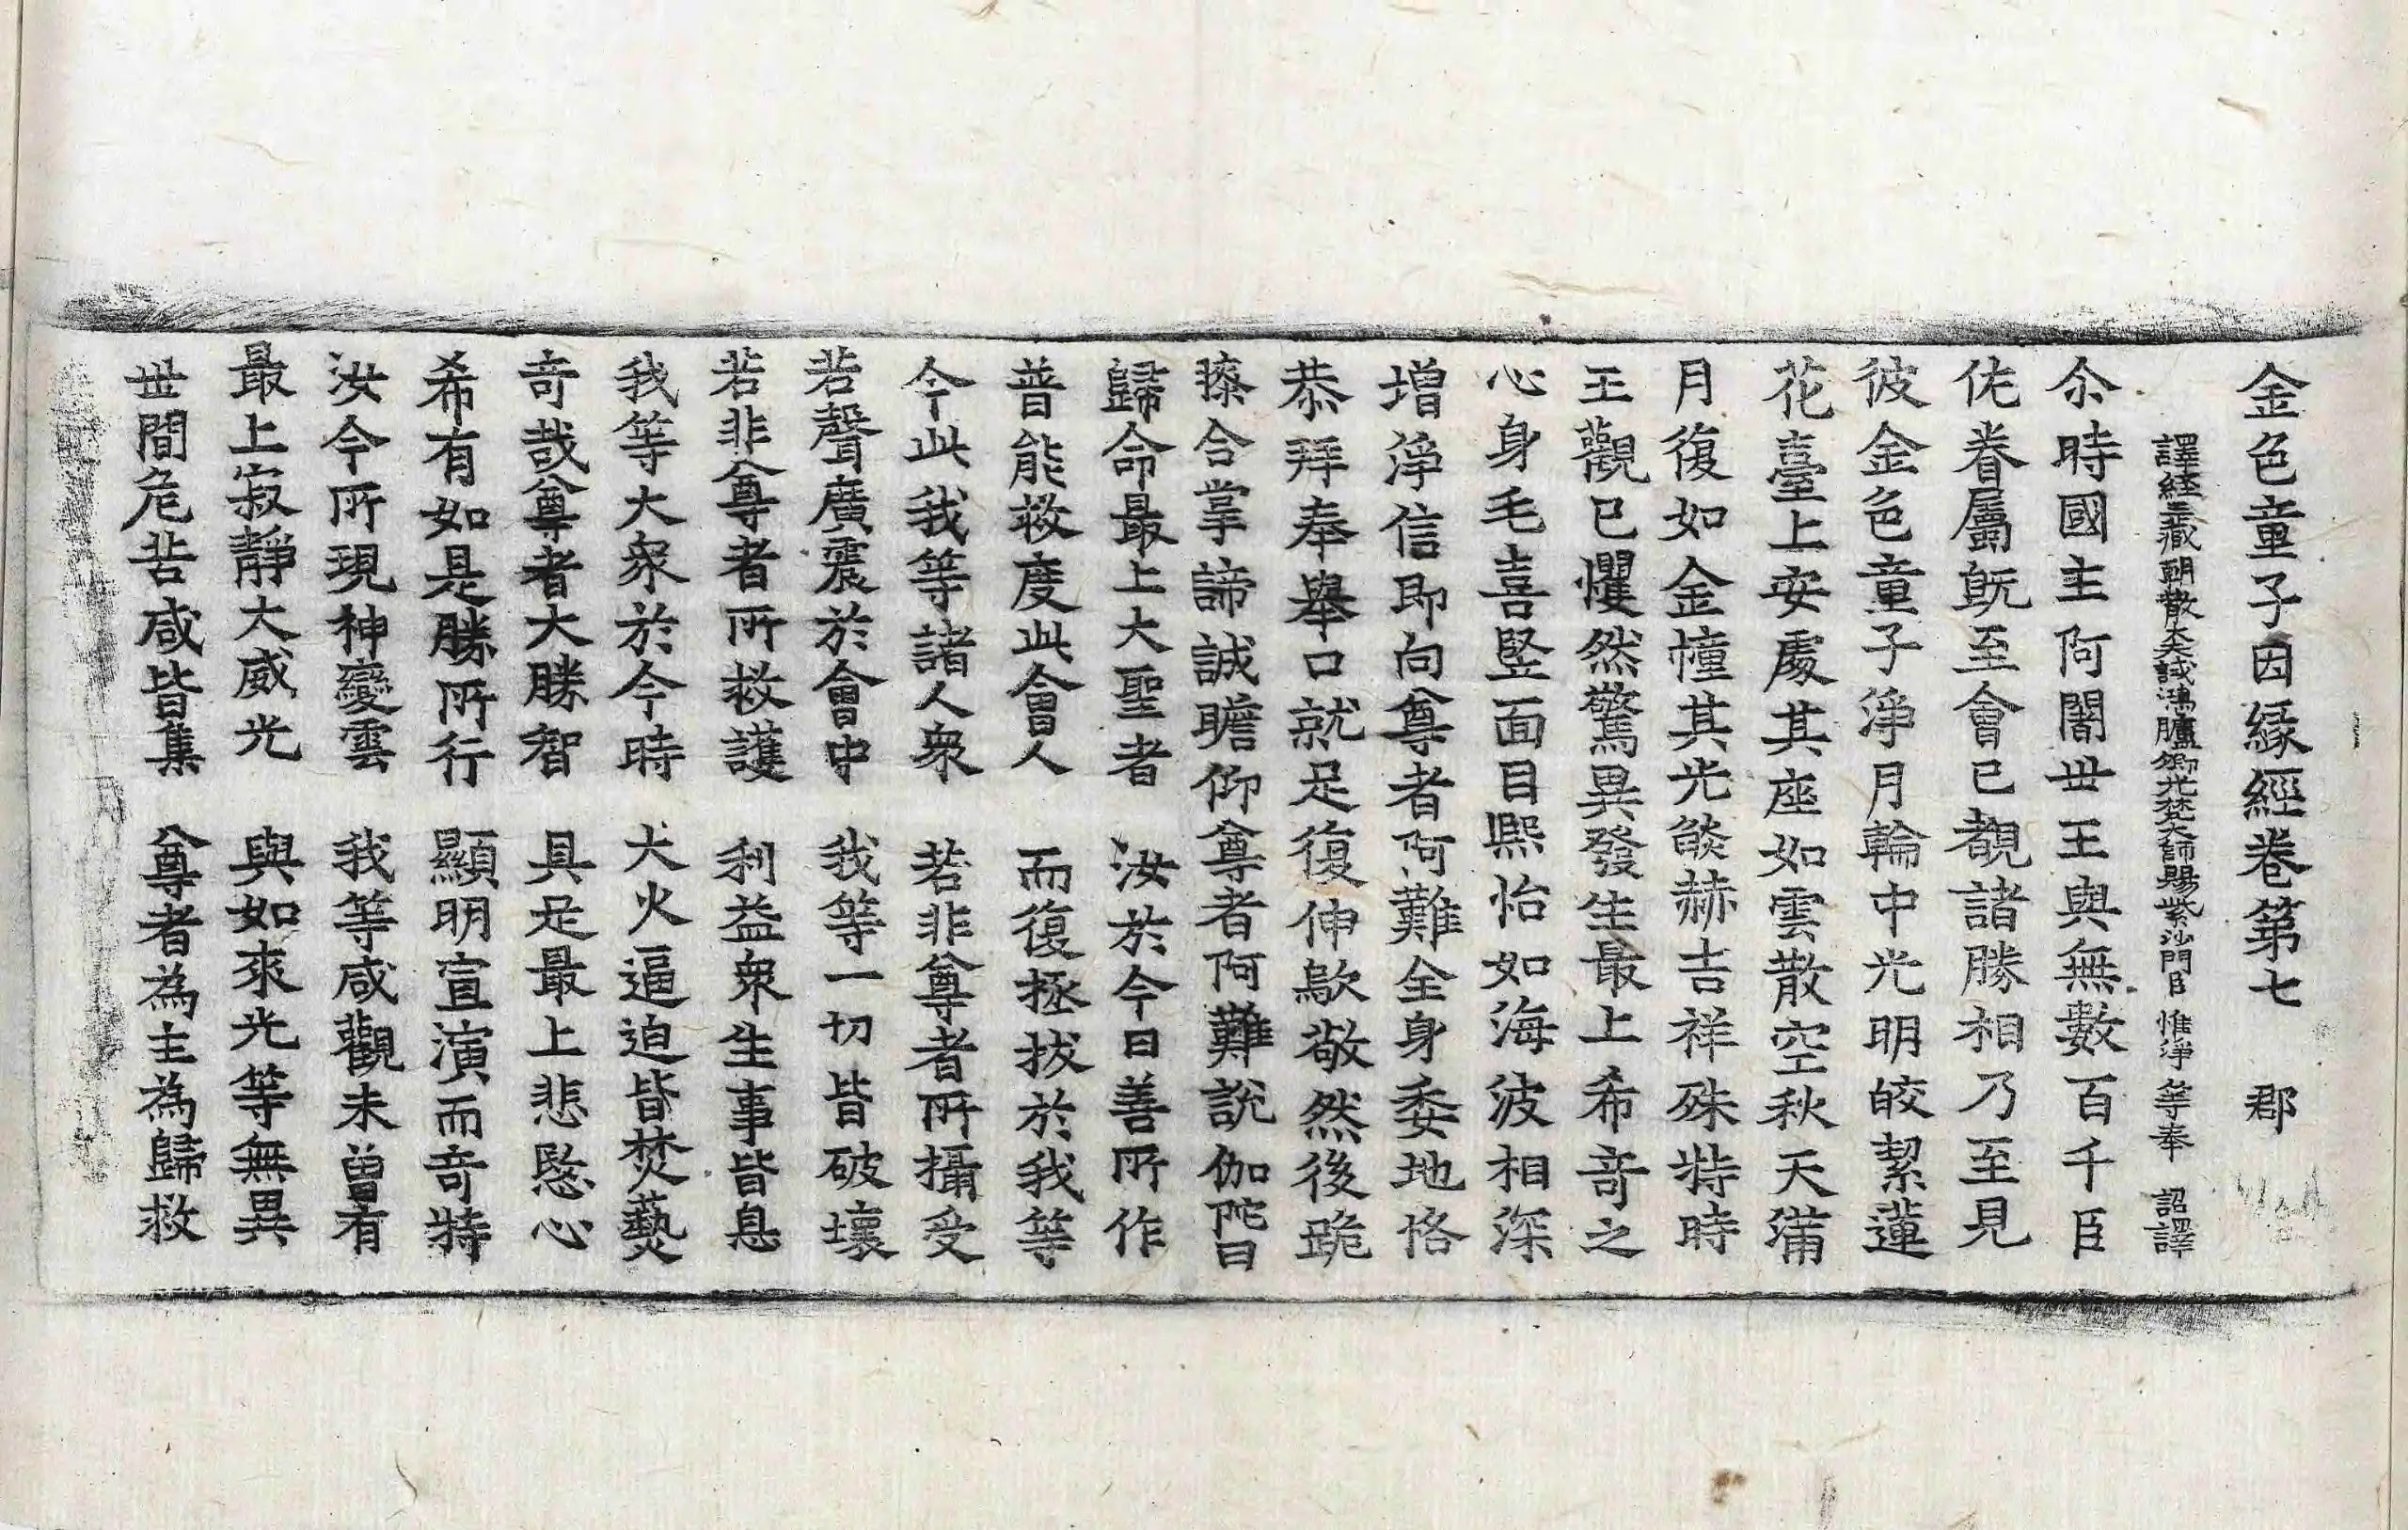 金色童子因縁經卷第七　郡
譯經三藏朝散大夫試鴻臚卿光梵大師賜紫沙門臣惟淨等奉　詔譯
尒時國主阿闍世王與無數百千臣
佐眷屬旣至會已覩諸勝相乃至見
彼金色童子淨月輪中光明皎絜蓮
花臺上安處其座如雲散空秋天滿
月復如金幢其光燄赫吉祥殊特時
王觀已懼然驚異發生最上希竒之
心身毛喜竪面目熙怡如海波相深
增淨信即向尊者阿難全身委地恪
恭拜奉舉口就足復伸歇敬然後跪
膝合掌諦誠瞻仰尊者阿難說伽陀曰
歸命最上大聖者　汝於今日善所作
普能救度此會人　而復拯拔於我等
今此我等諸人衆　若非尊者所攝受
苦聲廣震於會中　我等一切皆破壞
若非尊者所救護　利益衆生事皆息
我等大衆於今時　大火逼迫皆焚爇
竒哉尊者大勝智　具足最上悲愍心
希有如是勝所行　顯明宣演而竒特
汝今所現神變雲　我等咸觀未曾有
最上寂靜大威光　與如來光等無異
世間危苦咸皆集　尊者為主為歸救